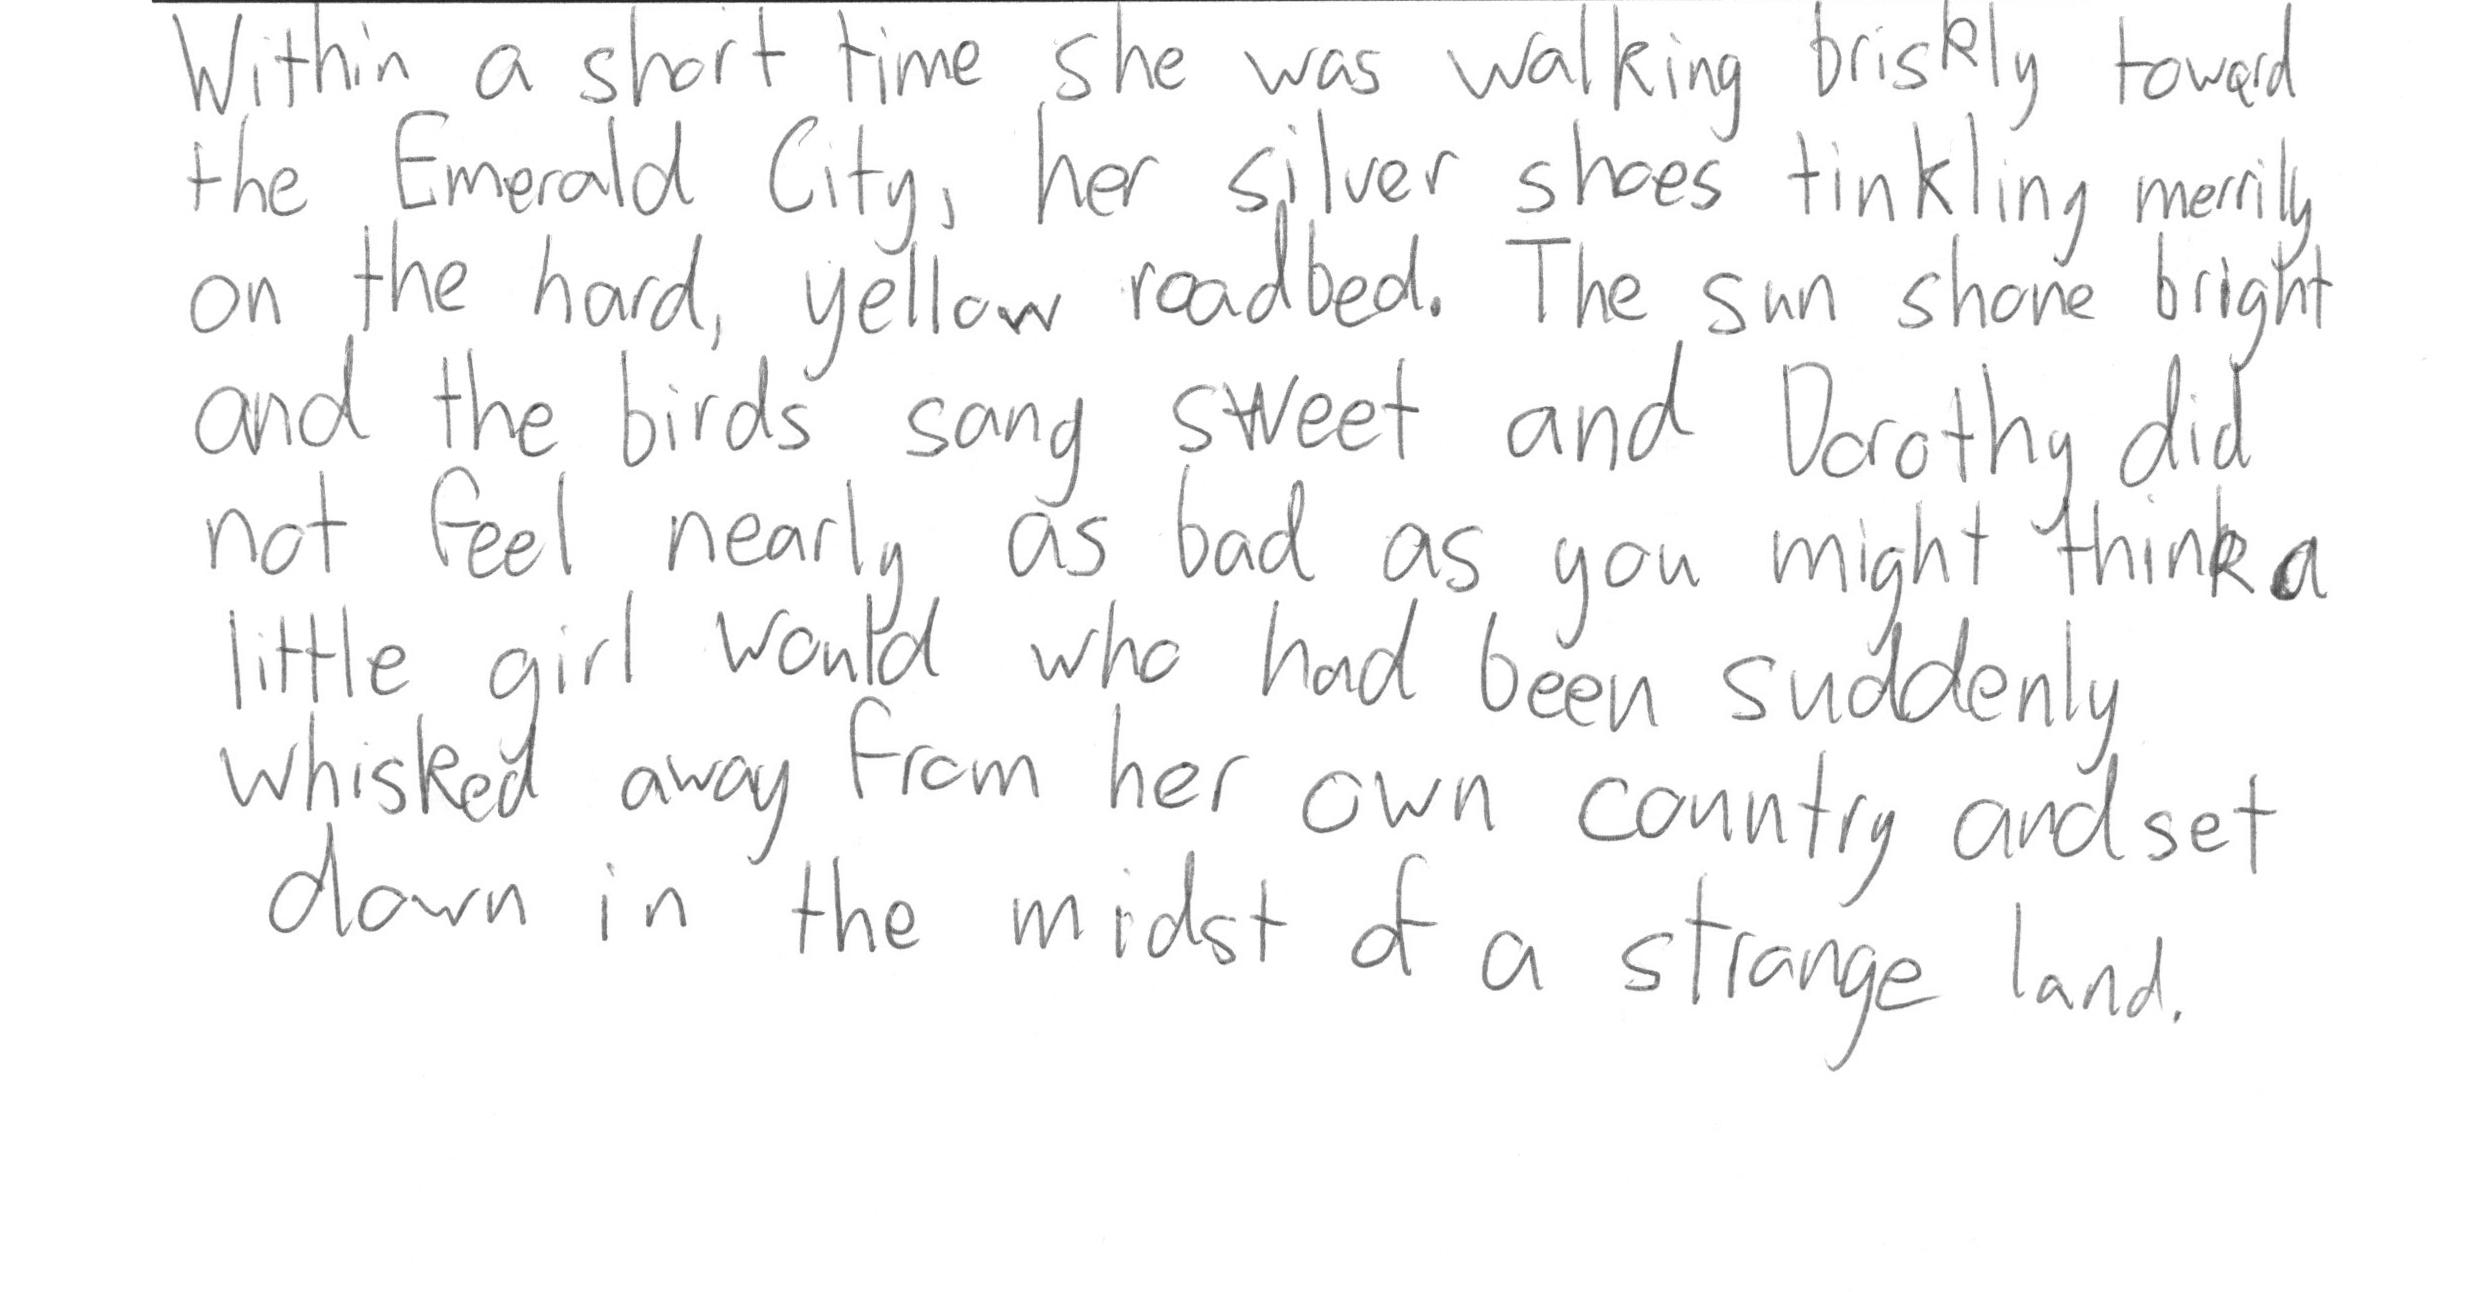 Within a short time she was walking briskly toward
the Emerald City, her silver shoes tinkling merrily
on the hard, yellow roadbed. The sun shone bright
and the birds sang sweet and Dorothy did
not feel nearly as bad as you might think a
little girl would who had been suddenly
whisked away from her own country and set
down in the midst of a strange land.